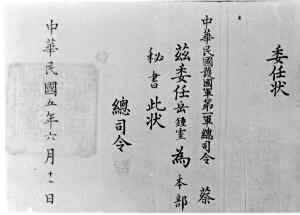 委任狀
中華民國護國軍第一軍總司令 蔡
茲委任岳鍾室為本部
秘書此狀
總司令
中華民國五年六月十一日